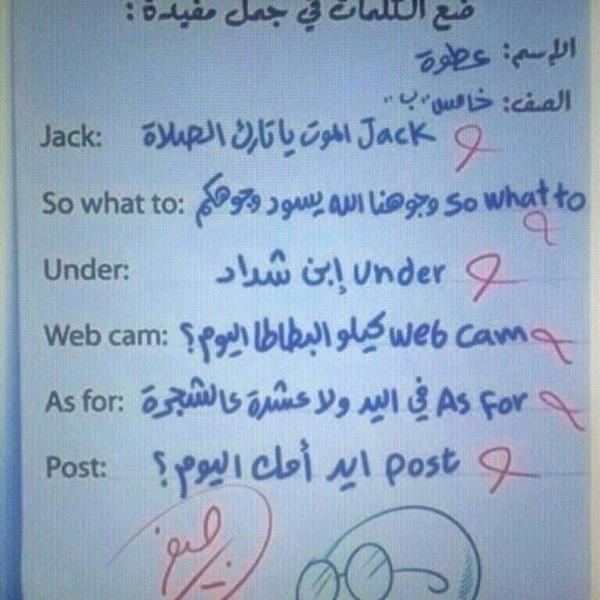 ضع الكلمات في جمل مفيدة :
الإسم: عطوة
الصف: خامس "ب"
Jack: Jack الموت يا تارك الصلاة
So what to: So what to وجوهنا الله يسود وجوهكم
Under: Under إبن شداد
Web cam: web cam كيلو البطاطا اليوم؟
As for: As For في اليد ولا عشرة عالشجرة
Post: post ايد أمك اليوم؟